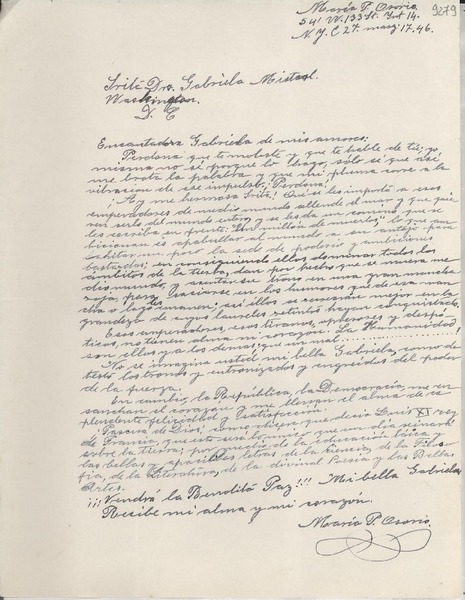 María P. Osorio
541 W. 133 St. Apt 14.
N.Y.C 27. mayo 17-46.
9279
Srita Dra. Gabriela Mistral.
Washington.
D. C
Encantadora Gabriela de mis amores:
Perdona que te moleste y que te hable de tú; yo,
misma no sé porque lo hago, sólo sé que así
me brota la palabra y que mi pluma corre a la
vibración de ese impulso: Perdona.
¡Ay me hermosa Srita! Qué se les importa a esos
emperadores de medio mundo allende el mar y que quie-
ren serlo del mundo entero, y se les da un comino que se
les escriba en frente: Un millón de muertos; lo que am-
bicionan es apabullar al mundo a su antojo para
saciar un poco la sed de poderío y ambiciones
bastardas; consiguiendo ellos dominar todos los
ámbitos de la tierra, dan por hecho que se muera me-
dio mundo, y asentar su trono en una gran mancha
roja, para saciarse en los humores que de esa man-
cha o lago emanan; así ellos se gozarían mejor en la
grandeza de cuyos laureles retintos hayan conquistado.
Esos emperadores, esos tiranos, opresores y despó-
ticos, no tienen alma ni corazón: La Humanidad
son ellos y a los demás que un mal
No se imagina usted mi bella Gabriela, como de-
testo los tronos y entronizados y engreídos del poder
de la fuerza.
En cambio, la República, la Democracia, me en-
sanchan el corazón y me llenan el alma de es-
plendente felicidad y satisfacción.
Pascua de Dios! como dicen que decía Luis XI rey
de Francia, que esto será único, que un día reinará
sobre la tierra: por medio de la educación laica y
las bellas y apacibles letras de la Ciencia, de la Filoso-
fía, de la Literatura, de la divina Poesía y las Bellas
Artes.
¡¡¡Vendrá la Bendita Paz!!! Mi bella Gabriela,
Recibe mi alma y mi corazón.
María P. Osorio.